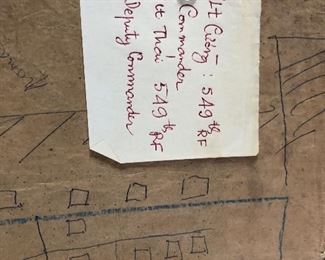 Lt Cường : 549th RF
Commander
Lt Thai 549th RF
Deputy Commander